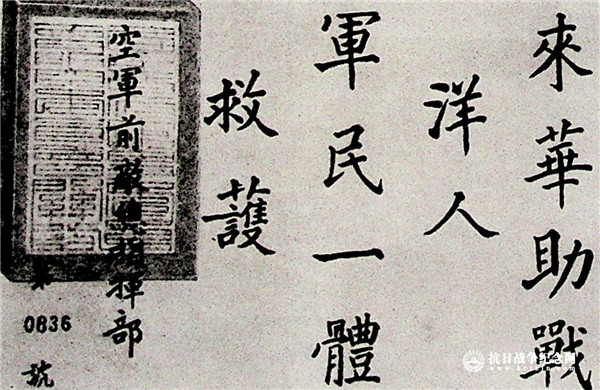 來華助戰
洋人
軍民一體
救護
空軍前敵總指揮部
第
0836
號
抗日战争纪念网